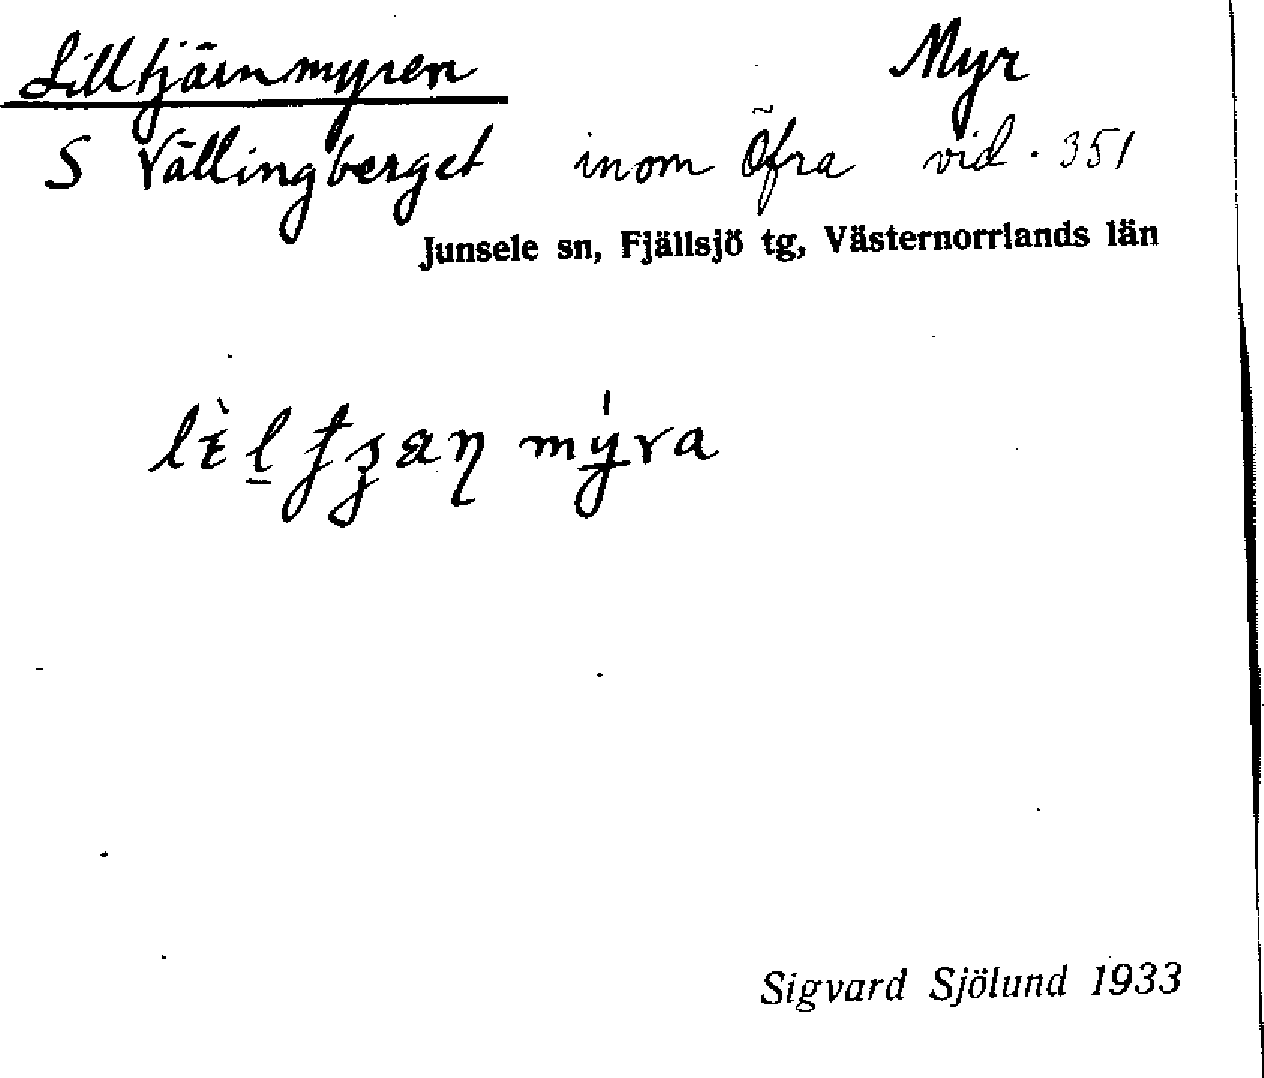 Lilltjärnmyren Myr
S Vällingberget inom Öfra vid · 351
Junsele sn, Fjällsjö tg, Västernorrlands län
Sigvard Sjölund 1933